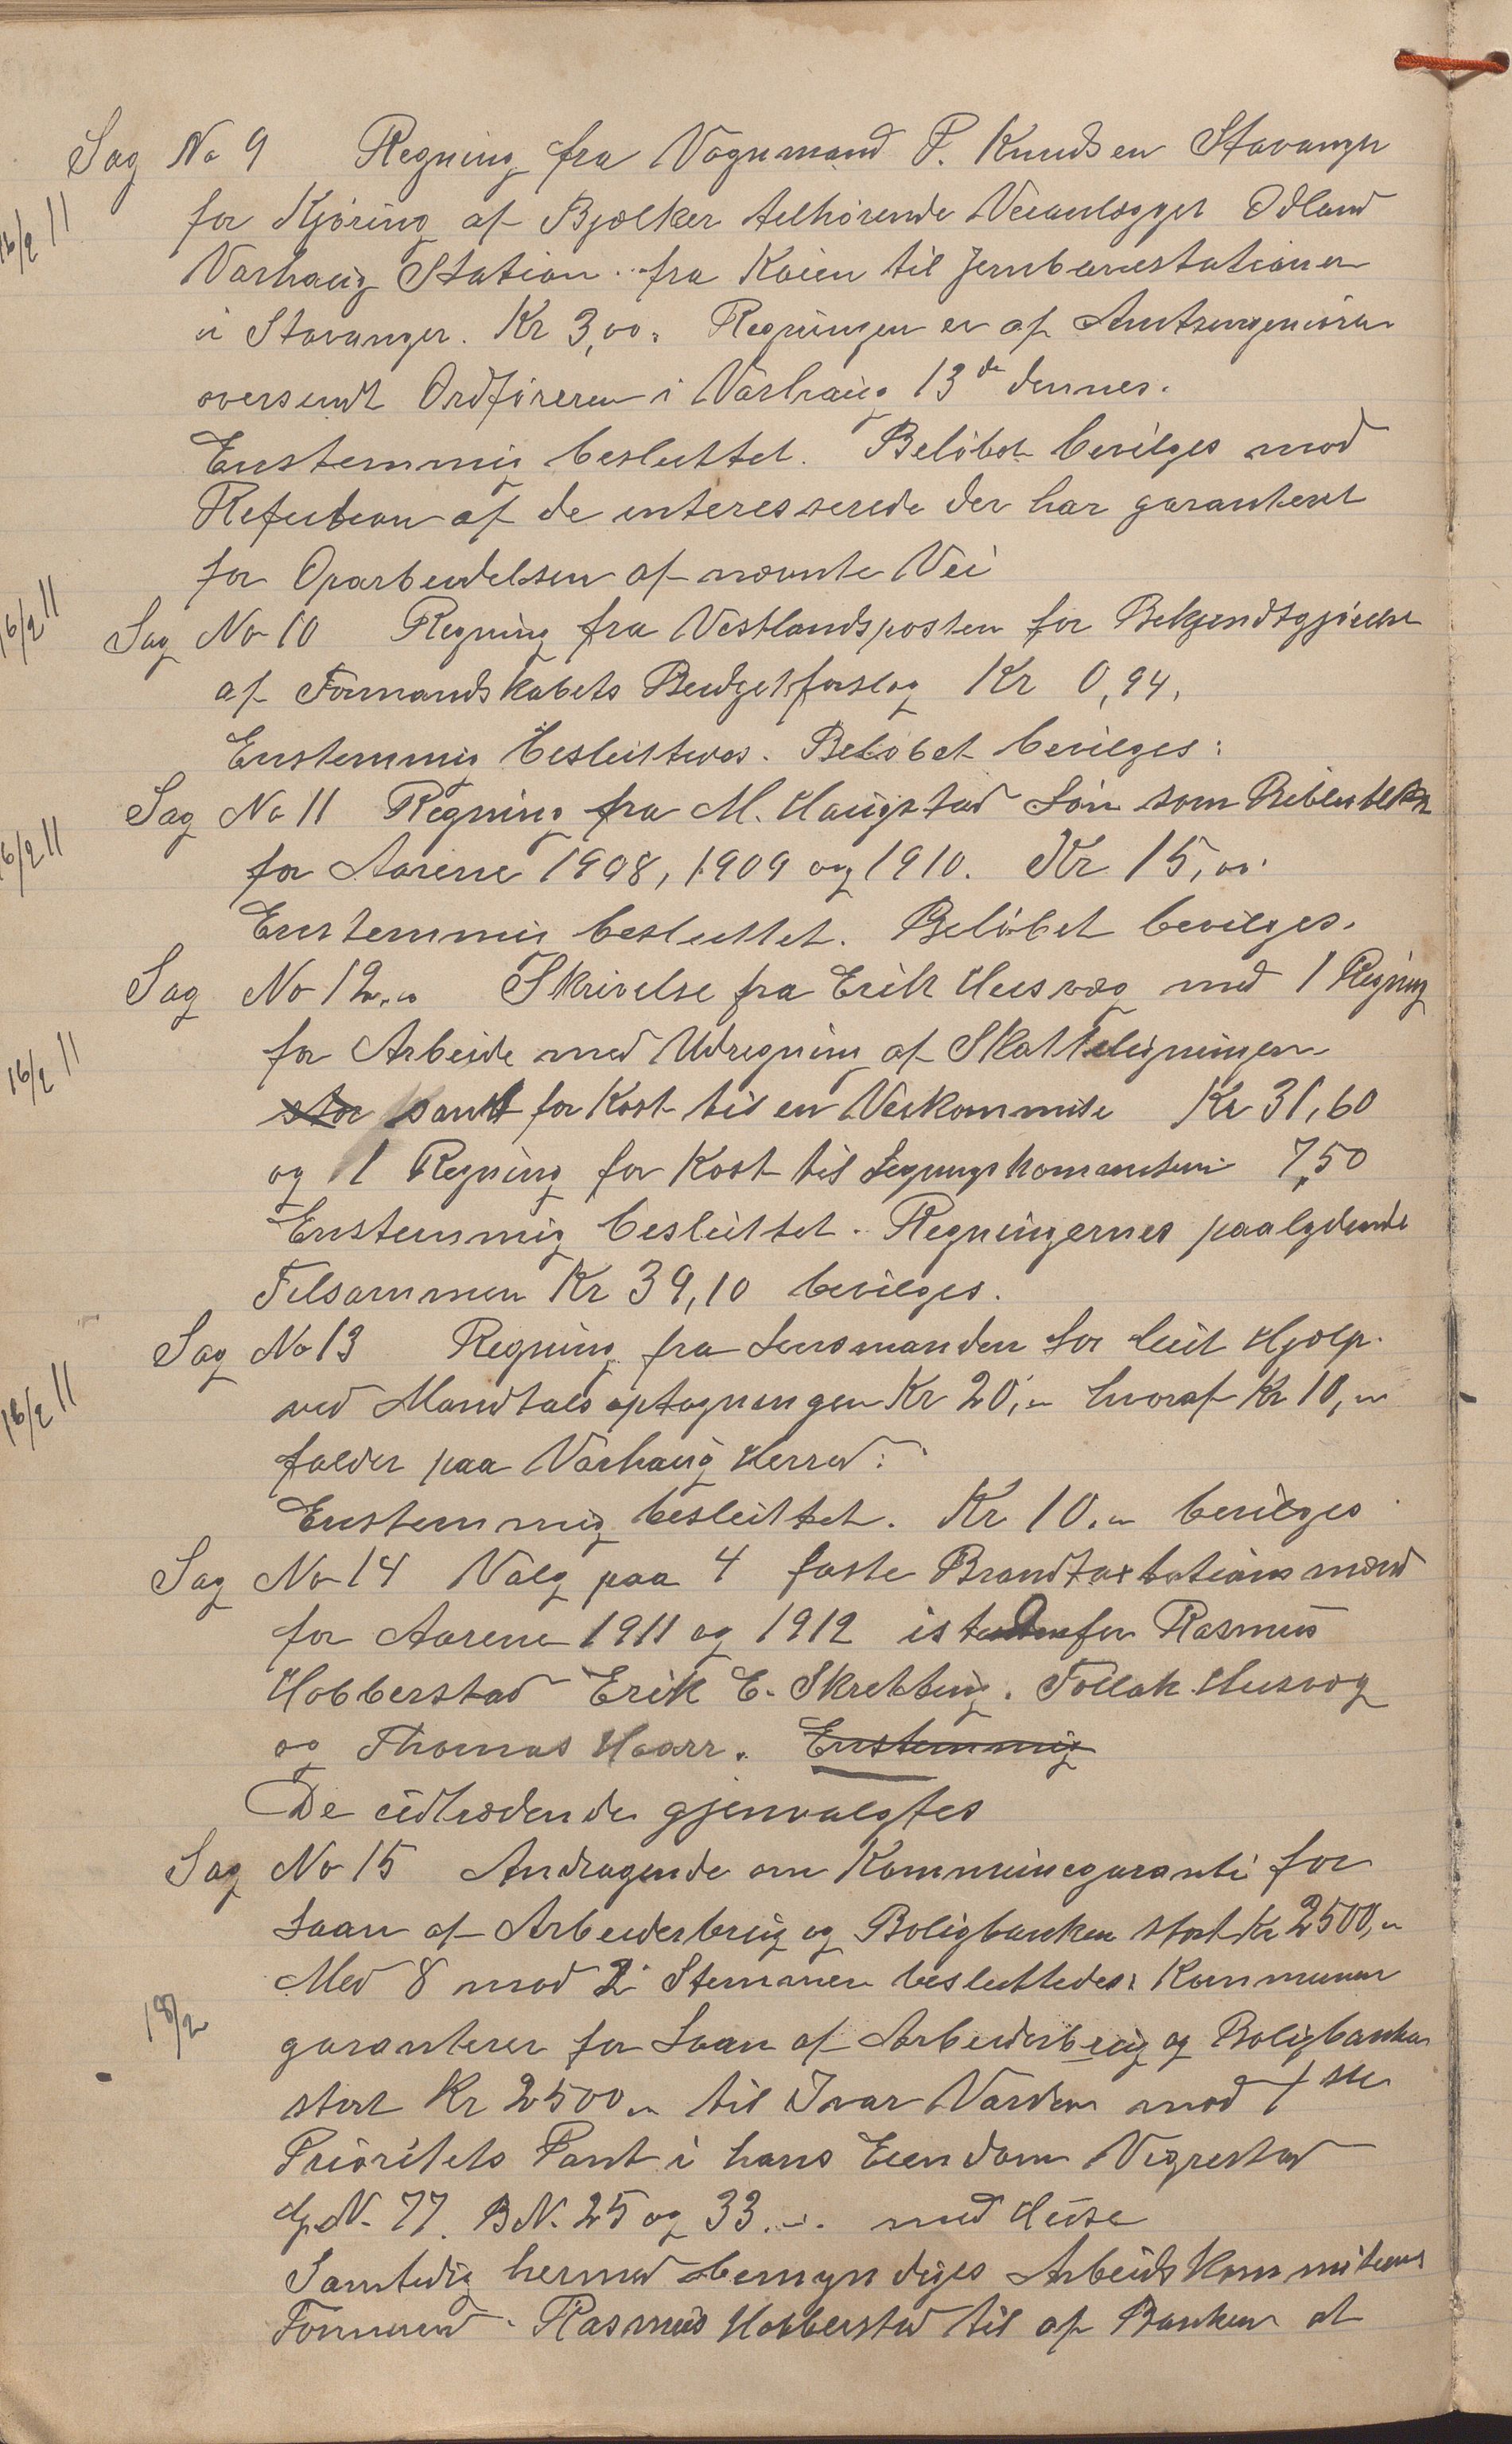 Sag No 9 Regning fra Vognmand P. Knudsen Stavanger
16/2 11
for Kjøring af Bjælker tilhørende Veianlægget Ødland
Varhaug Station fra Kaien til Jernbanestationen
i Stavanger. Kr 3,00. Regningen er af Amtsingeniøren
oversendt Ordføreren i Varhaug 13de dennes.
Enstemmig besluttet. Beløbet bevilges mod
Refusion af de interesserede der har garanteret
for Oparbeidelsen af nævnte Vei
16/2 11
Sag No 10 Regning fra Vestlandsposten for Bekjendtgjørelse
af Formandskabets Budgetforslag Kr 0,94.
Enstemmig besluttedes. Beløbet bevilges:
Sag No 11 Regning fra M. Haugstad Løn som Bibliothekar
16/2 11
for Aarene 1908, 1909 og 1910. Kr 15,00.
Enstemmig besluttet. Beløbet bevilges.
Sag No 12 Skrivelse fra Erik Husvæg med 1 Regning
16/2 11
for Arbeide med Udregning af Skatteligningen
stor samt for Kost til en Veikommite Kr 31,60
og 1 Regning for Kost til Ligningskommisionen 7,50
Enstemmig besluttet. Regningernes paalydende
Tilsammen Kr 39,10 bevilges.
Sag No 13 Regning fra Lensmanden for leiet Hjælp
16/2 11
ved Mandtalsoptagningen Kr 20,- hvoraf Kr 10,-
falder paa Varhaug Herred:
Enstemmig besluttet. Kr 10.- bevilges
Sag No 14 Valg paa 4 faste Brandtaxtationsmænd
for Aarene 1911 og 1912 istedenfor Rasmus
Hobberstad Erik E. Skretting. Tollak Husvæg
og Thomas Haarr. Enstemmig
De udtrædende gjenvalgtes
Sag No 15 Andragende om Kommunegaranti for
Laan af Arbeiderbrug og Boligbanken stort Kr 2500,-
Med 8 mod 2 Stemmer besluttedes: Kommunen
18/2
garanterer for Laan af Arbeiderbrug og Boligbanken
stort Kr 2500.- til Ivar Varden mod 1ste
Prioritets Pant i hans Eiendom Vigrestad
G.N. 77. B.N. 25 og 33. med Huse
Samtidig hermed bemyndiges Arbeidskommiteens
Formand Rasmus Hobberstad til af Banken at